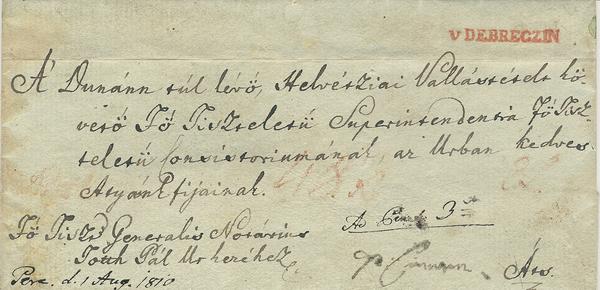 v DEBRECZIN
Á Dunánn túl lévő, Helvétziai Vallástételt kö-
vető Fő Tiszteletű Superintendentia Fő Tisz-
teletű Consistoriumának, az Urban kedves
Atyánkfijainak.
Fő Tiszt Generalis Notárius
Toth Pál Ur kezéhez
Perc. d. 1 Aug. 1810
3